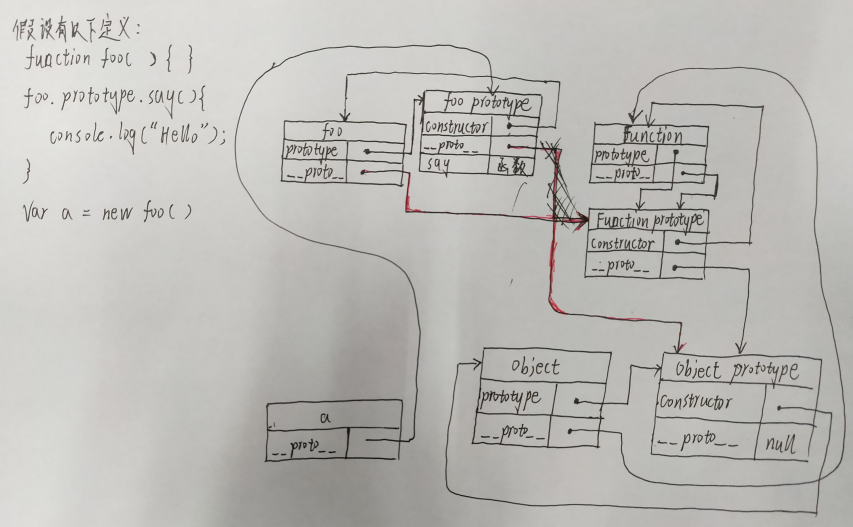 假设有以下定义:
function foo( ) { }
foo.prototype.say(){
console.log("Hello");
}
Var a = new foo()
foo
prototype
__proto__
foo prototype
constructor
__proto__
say 函数
function
prototype
__proto__
Function prototype
constructor
__proto__
a
__proto__
object
prototype
__proto__
object prototype
constructor
__proto__ null